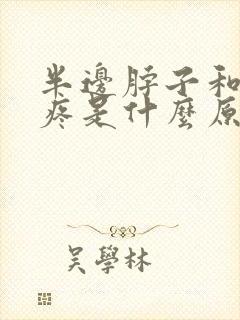 半邊脖子和
疼是什麼原
吳學林